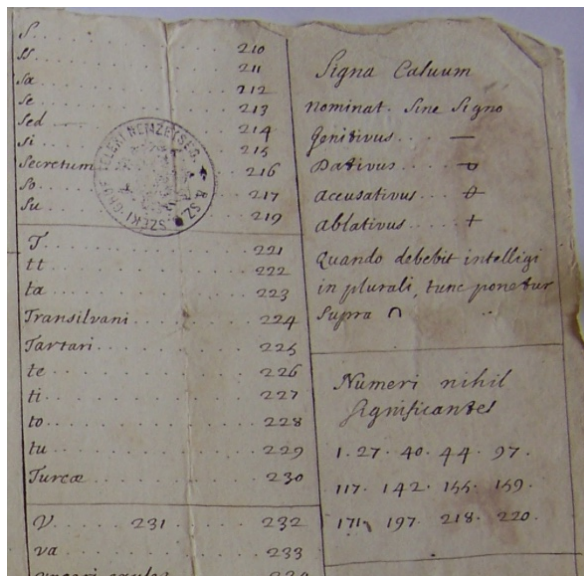 S . . . . 210
ss . . . . 211
sa . . . . 212
se . . . . 213
sed . . . . 214
si . . . . 215
Secretum . . 216
so . . . . 217
su . . . . 219
T . . . . 221
tt . . . . 222
ta . . . . 223
Transilvani . . . . 224
Tartari . . . . 225
te . . . . 226
ti . . . . 227
to . . . . 228
tu . . . . 229
Turcæ . . . . 230
V . . 231 . . . . 232
va . . . . 233
Signa Casuum
nominat. sine signo
genitivus . . . —
Dativus . . .
accusativus . . .
ablativus . . . +
Quando debebit intelligi
in plurali, tunc ponetur
supra ∩
Numeri nihil
significantes
1. 27. 40. 44. 97.
117. 142. 155. 159.
171. 197. 218. 220.